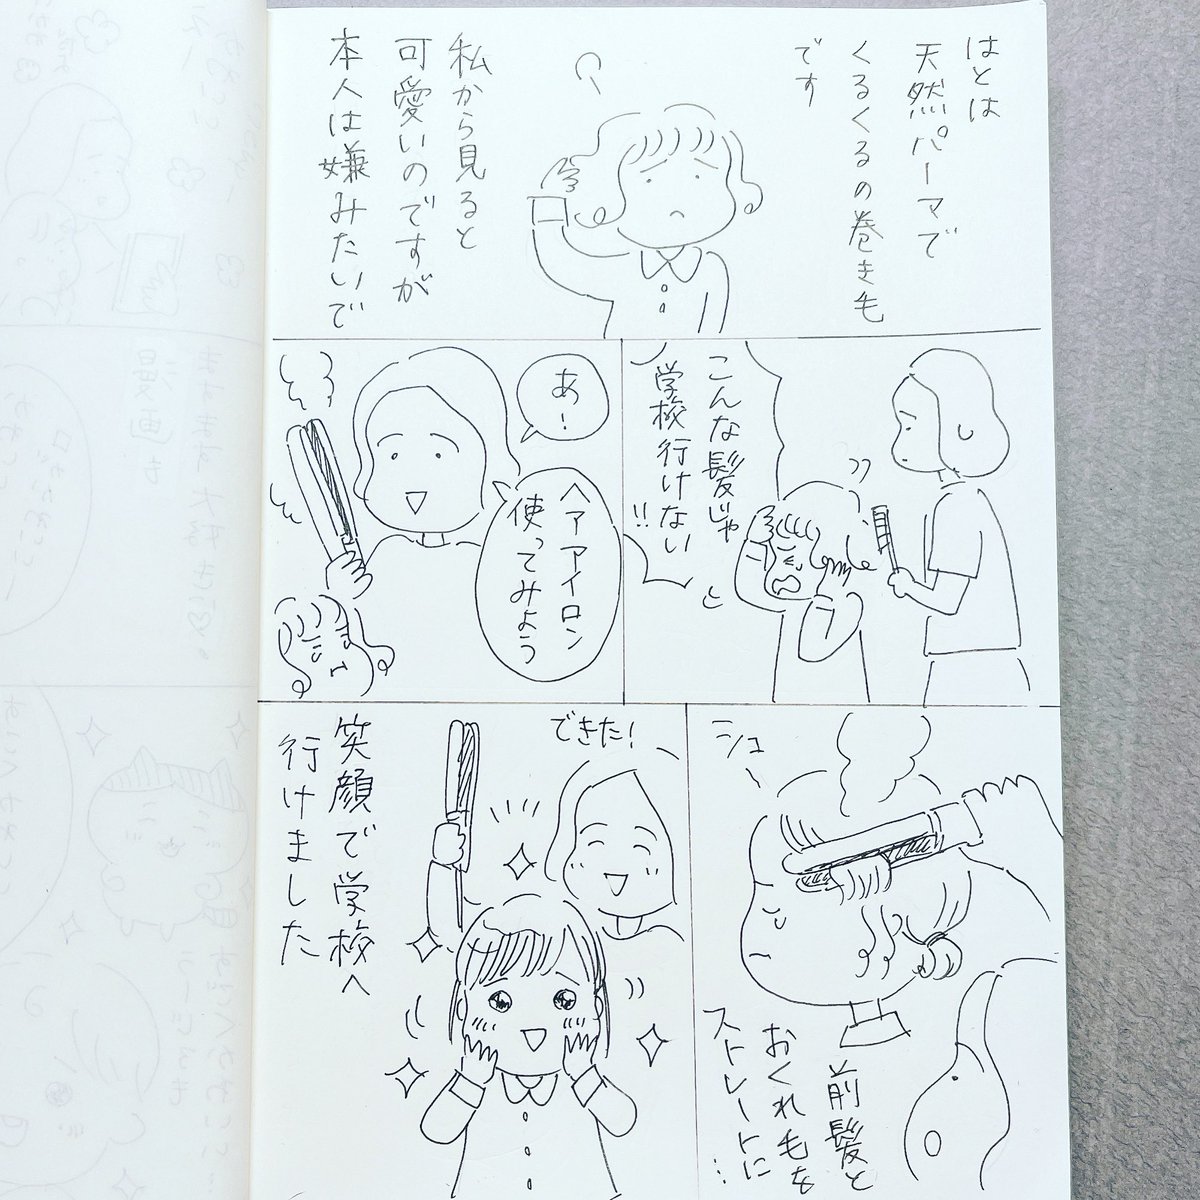 はとは
天然パーマで
くるくるの巻き毛
です
私から見ると
可愛いのですが
本人は嫌みたいで
こんな髪じゃ
学校行けない
!!
あ!
ヘアアイロン
使ってみよう
ジュー
前髪と
おくれ毛を
ストレートに…
できた!
笑顔で学校へ
行けました